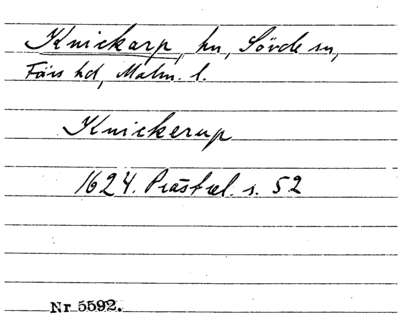 Knickarp, hn, Sövde sn,
Färs hd, Malm. l.
Knickerup
1624. Prästrel. s. 52
Nr 5592.